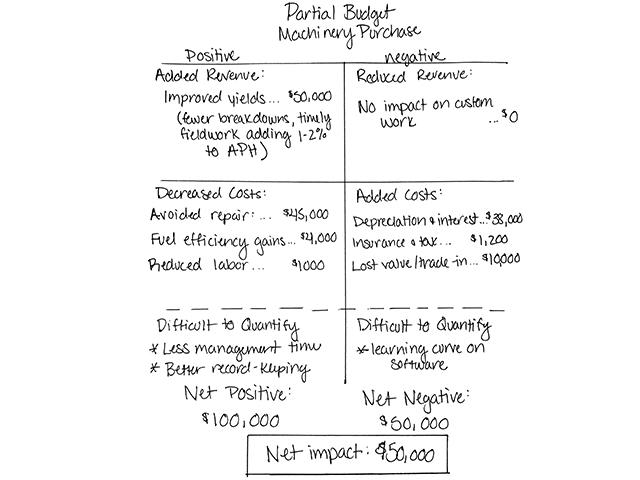 Partial Budget
Machinery Purchase
Positive
Added Revenue:
Improved yields... $50,000
(fewer breakdowns, timely
fieldwork adding 1-2%
to APH)
Decreased Costs:
Avoided repair:... $45,000
Fuel efficiency gains... $4,000
Reduced labor... $1000
Difficult to Quantify
* Less management time
* Better record-keeping
Net Positive:
$100,000
negative
Reduced Revenue:
No impact on custom
work ... $0
Added Costs:
Depreciation & interest...$38,000
Insurance & tax... $1,200
Lost value/trade-in... $10,000
Difficult to Quantify
* learning curve on
software
Net Negative:
$50,000
Net impact: $50,000